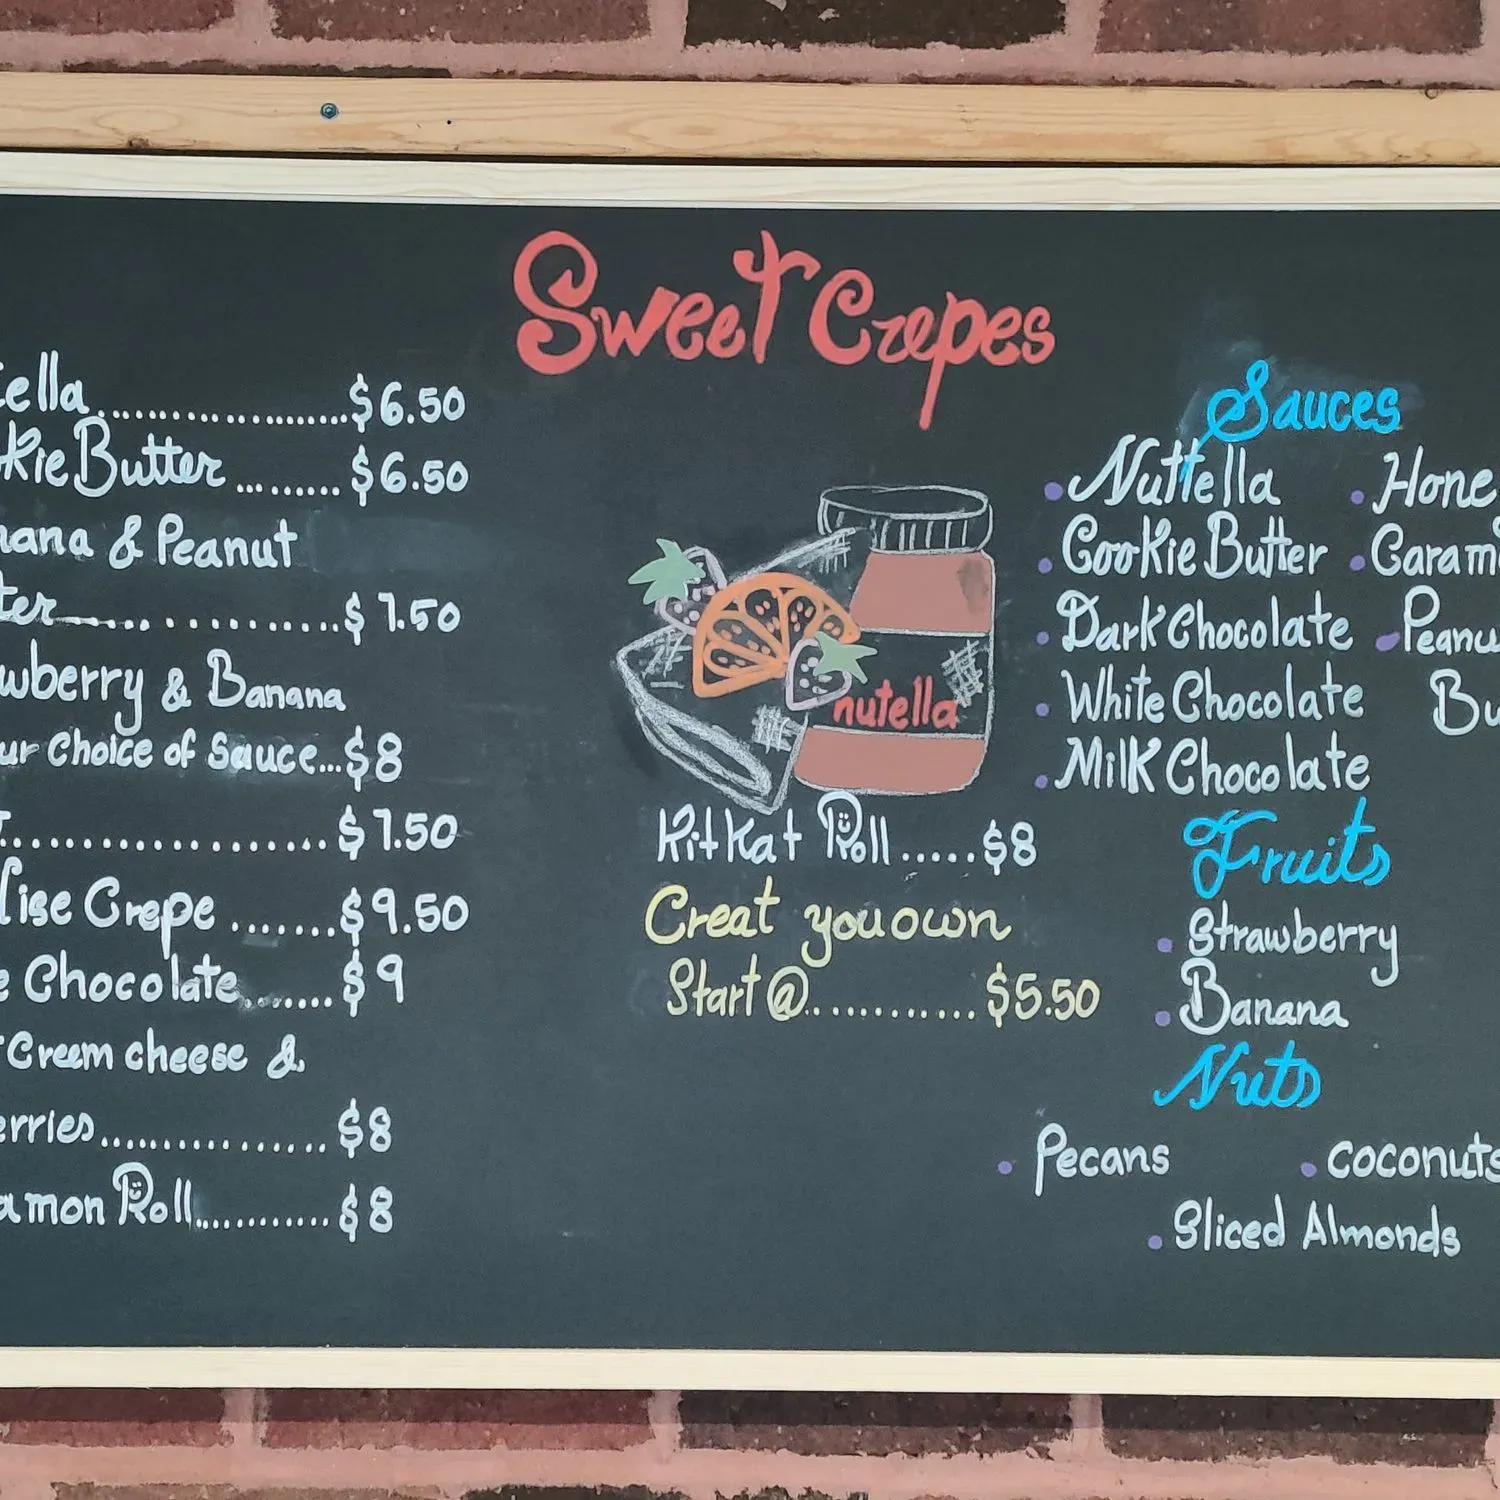 Sweet Crepes
ella.....................$6.50
kie Butter..........$6.50
nana & Peanut
ter..................$7.50
wberry & Banana
ur Choice of Sauce...$8
......................$7.50
ise Crepe.......$9.50
e Chocolate.......$9
Creem cheese &
erries................$8
amon Roll............$8
nutella
KitKat Roll.....$8
Creat you own
Start@...........$5.50
Sauces
• Nuttella
• Cookie Butter
• Dark Chocolate
• White Chocolate
• Milk Chocolate
• Hone
• Caram
• Peanu
Bu
Fruits
• Strawberry
• Banana
Nuts
• Pecans • coconuts
• Sliced Almonds